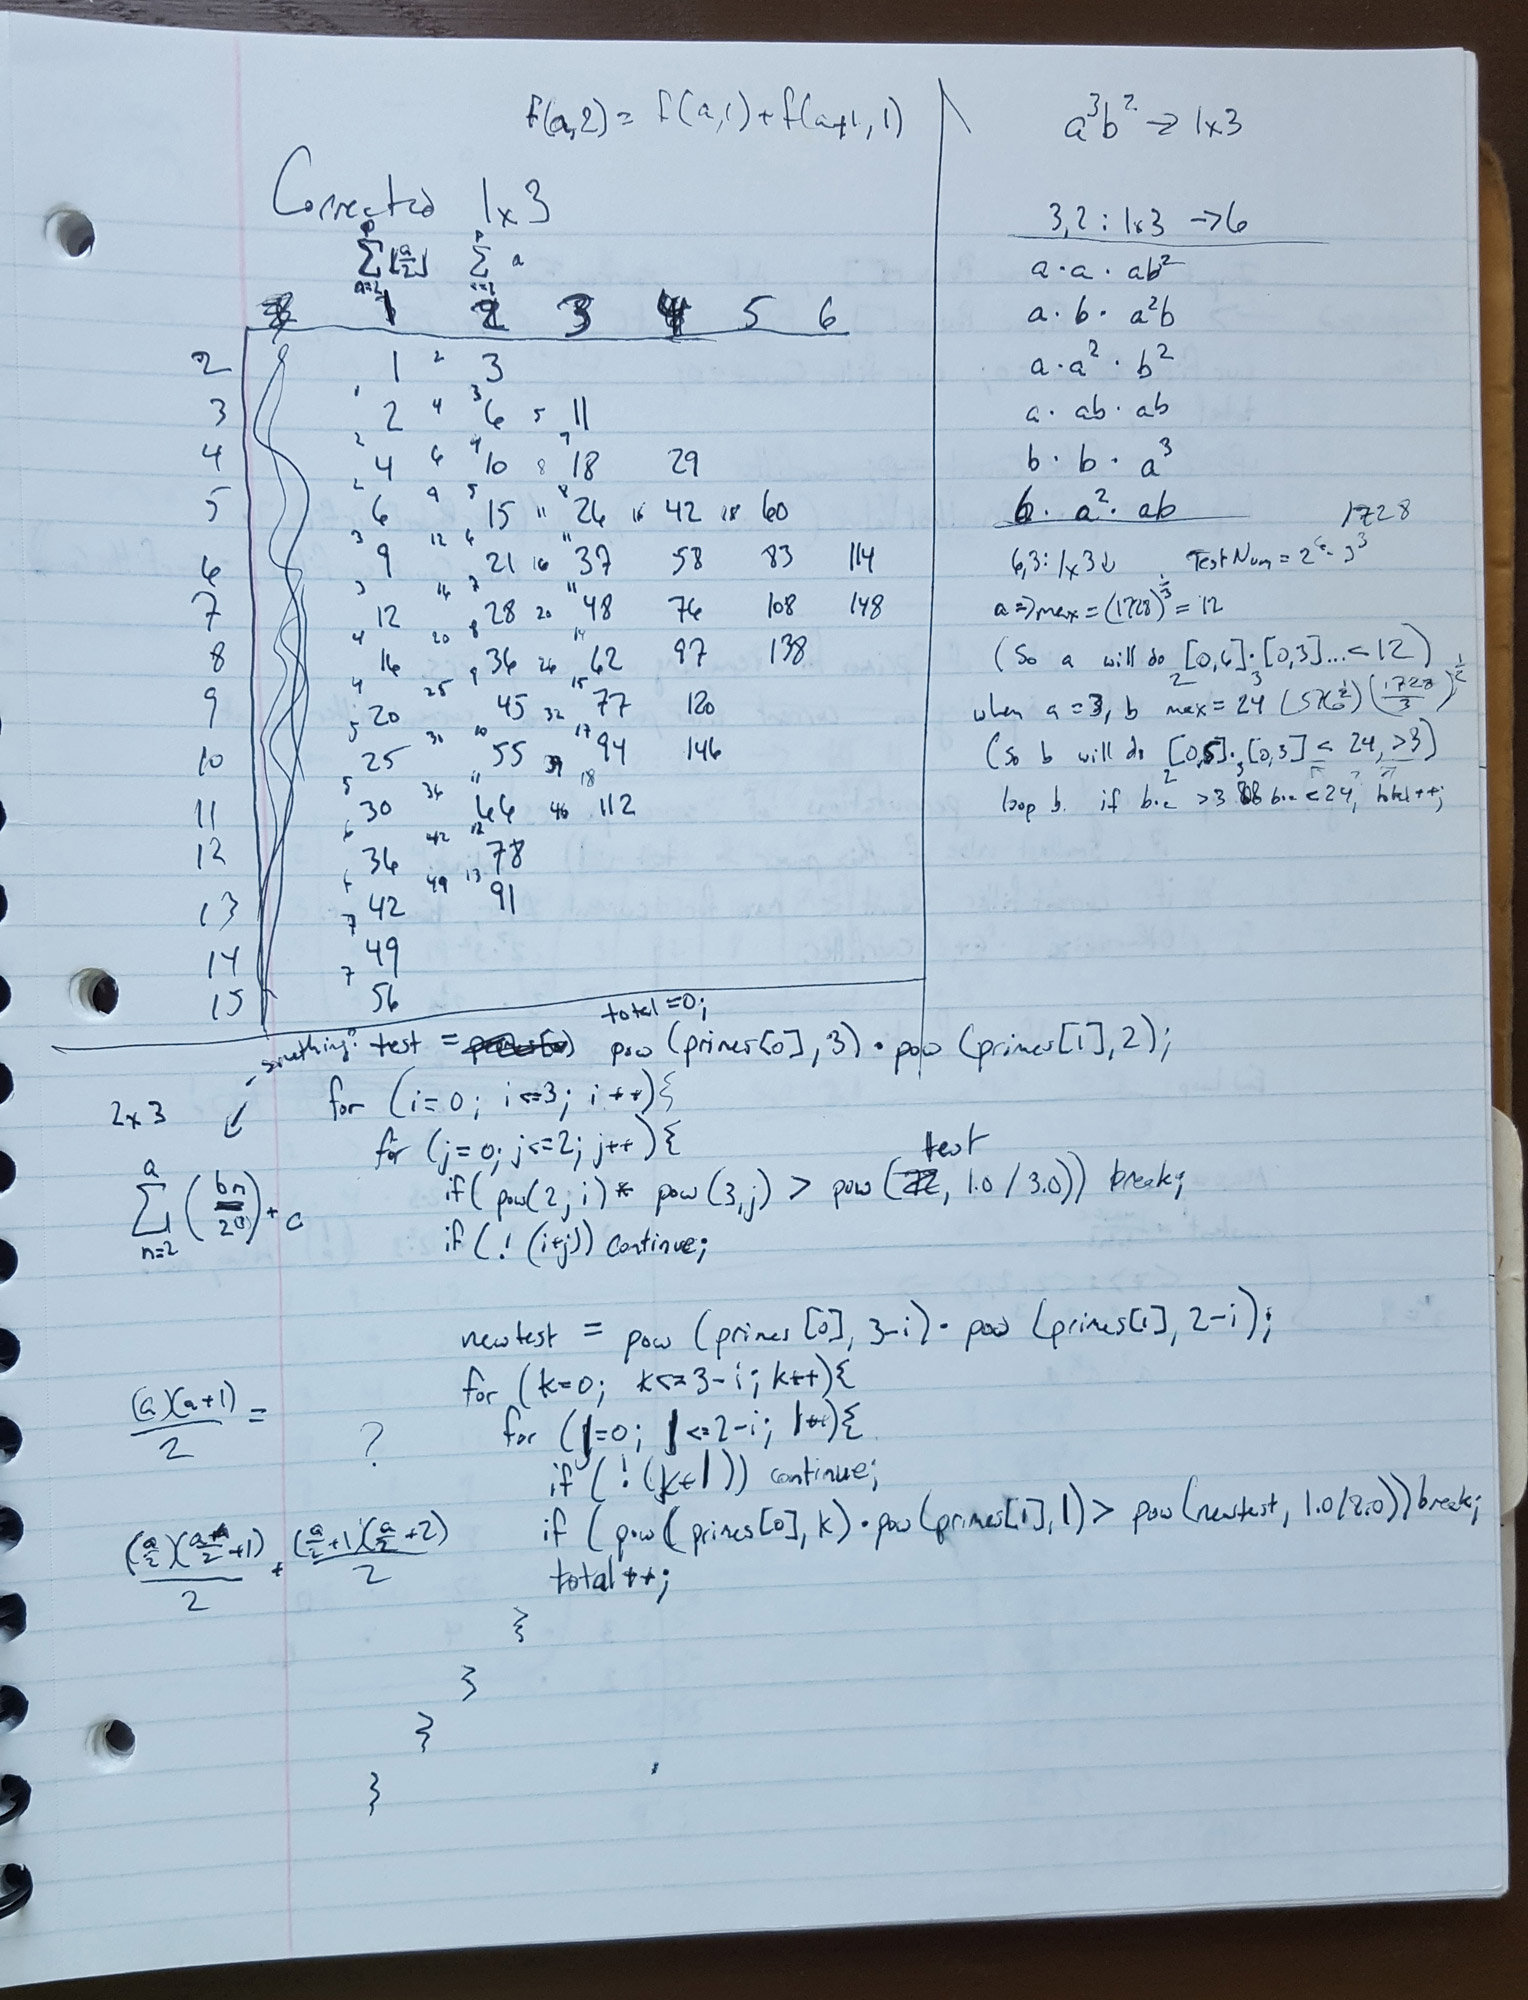 f(a,2) = f(a,1) + f(a+1, 1)
Corrected 1x3
∑ ⌊a/2⌋ ∑ a
a=2
1 2 3 4 5 6
2 1 2 3
3 1 2 4 3 6 5 11
4 2 4 6 4 10 8 7 18 29
5 2 6 9 5 15 11 8 26 16 42 18 60
6 3 9 12 6 21 16 11 37 58 83 114
7 3 12 16 7 28 20 11 48 76 108 148
8 4 16 20 8 36 26 14 62 97 138
9 4 20 25 9 45 32 15 77 120
10 5 25 30 10 55 39 17 94 146
11 5 30 36 11 66 46 18 112
12 6 36 42 12 78
13 6 42 49 13 91
14 7 49
15 7 56
a³b² → 1x3
3,2 : 1x3 → 6
a · a · ab²
a · b · a²b
a · a² · b²
a · ab · ab
b · b · a³
b · a² · ab
1728
6,3: 1x3↓ Test Num = 2⁶ · 3³
a ⇒ max = (1728)^1/3 = 12
(So a will do [0,6] · [0,3] ... < 12)
2 3
when a = 3, b max = 24 (576^1/2) (1728/3)^1/2
(So b will do [0,5] · [0,3] ≤ 24, >3)
2 3
loop b. if b.c >3 && b.c < 24, total++;
something: test = pow (primes[0], 3) · pow (primes[1], 2);
total = 0;
for (i=0; i<=3; i++){
for (j=0; j<=2; j++){
if( pow(2,i) * pow(3,j) > pow(test, 1.0/3.0)) break;
if (! (i+j)) continue;
newtest = pow (primes[0], 3-i) · pow (primes[1], 2-i);
for (k=0; k<=3-i; k++){
for (l=0; l<=2-i; l++){
if (! (k+l)) continue;
if (pow(primes[0], k) · pow(primes[1], l) > pow(newtest, 1.0/2.0)) break;
total++;
}
}
}
}
2x3
a
∑ (bn/2) + c
n=2
(a)(a+1)/2 = ?
(a/2)(a/2+1)/2 + (a/2+1)(a/2+2)/2